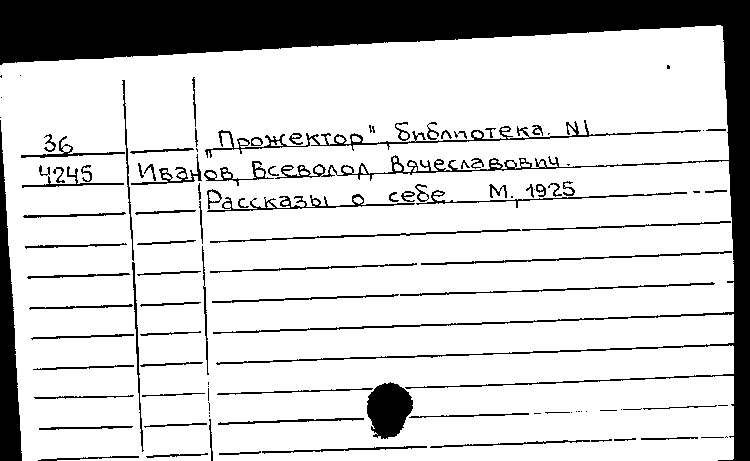 36 „Прожектор", библиотека. N1
4245 Иванов, Всеволод, Вячеславович.
Рассказы о себе. М., 1925